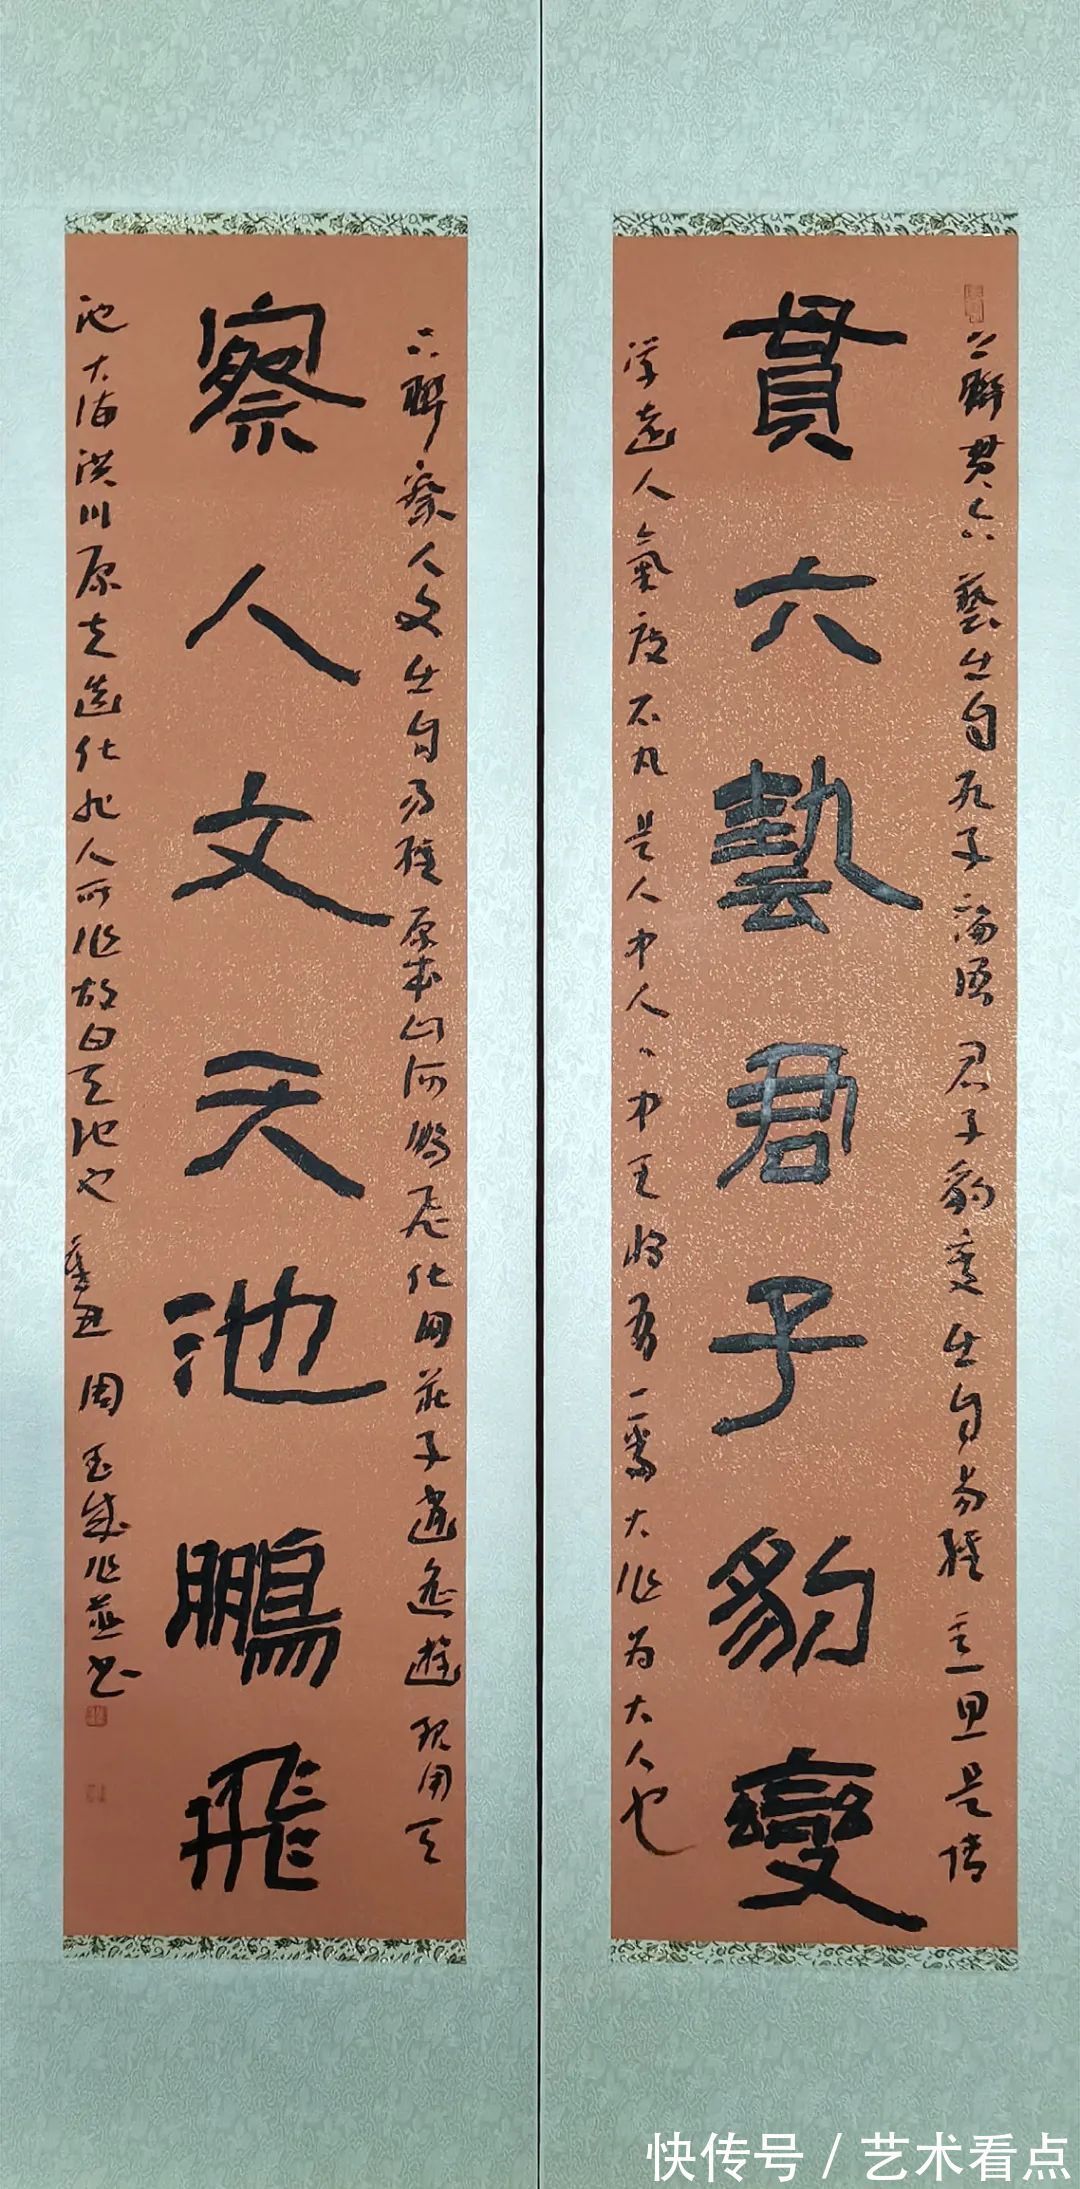 上聯貫六藝出自孔子論語君子豹變出自易經主旦是博
貫六藝君子豹變
学遠人氣度不凡是人中人人中王将有一番大作为大人也
下聯察人文出自易經原本山河鵬飛化用莊子逍遙遊現用天
察人文天池鵬飛
池大海洪川原夫造化非人所作故曰天池也辛丑周玉成作並书
快传号/艺术看点